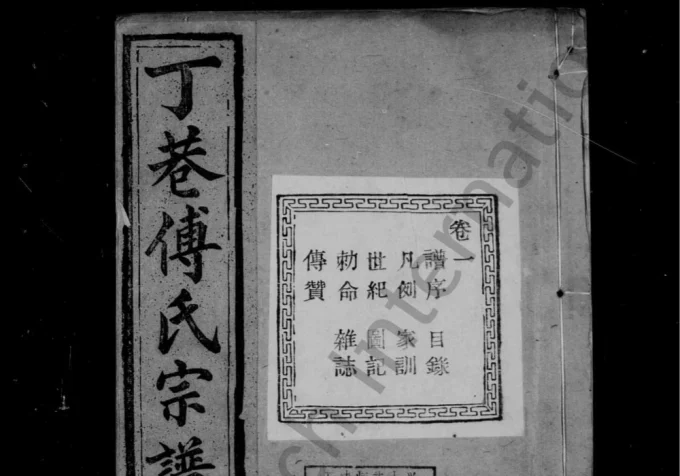 丁巷傅氏宗譜
卷一
譜序 目錄
凡例 家訓
世紀 圖記
勅命 雜誌
傳贊